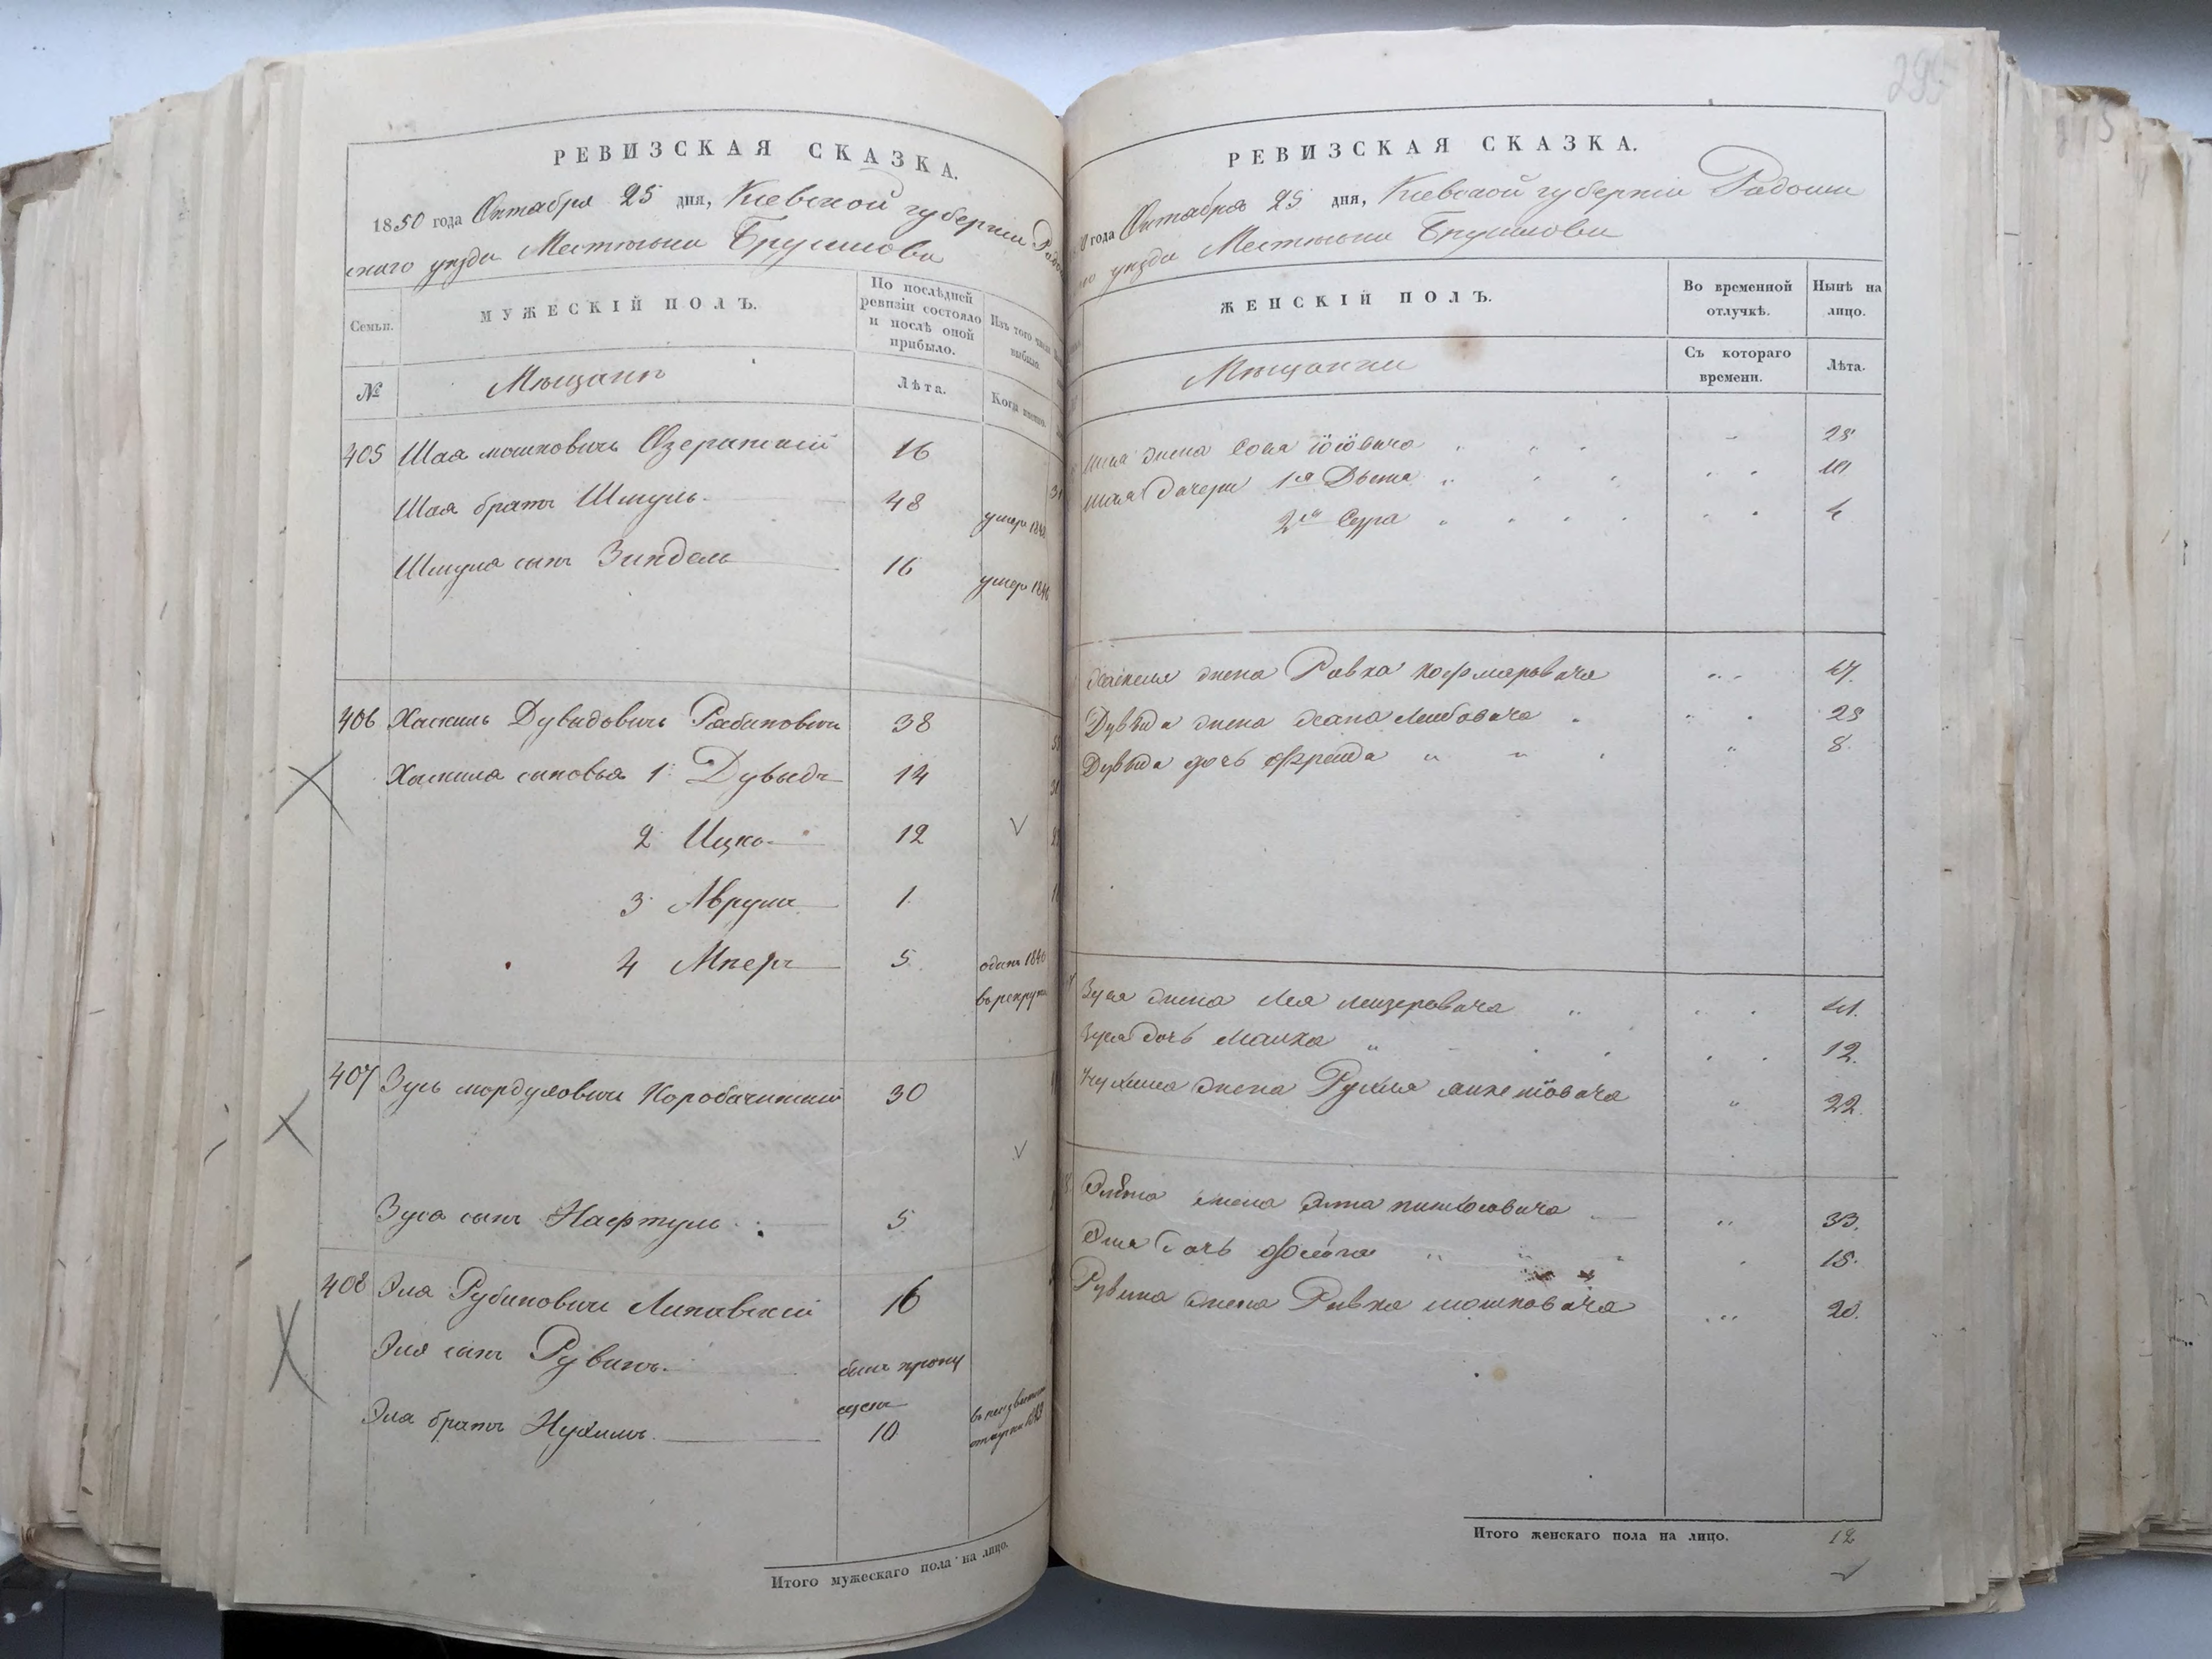 РЕВИЗСКАЯ СКАЗКА.
1850 года Октября 25 дня, Кіевской губерніи Радо
скаго уѣзда Мѣстечка Брусилова
Семьи.
МУЖЕСКІЙ ПОЛЪ.
По послѣдней ревизіи состояло и послѣ оной прибыло.
Изъ того числа выбыло.
№
Мѣщанъ
Лѣта.
Когда именно.
405 Шая мошковичъ Озератскій 16
Шая братъ Шмуль 48 умеръ
Шмуля сынъ Зиндель 16 умеръ
406 Хаскиль Дувидовичъ Рабиновичъ 38
Хаскиля сыновья 1 Дувыдъ 14
2 Ицко 12
3 Аврумъ 1
4 Мееръ 5 отданъ 1846
въ рекруты
407 Зусь мордуховичъ Коробочинскій 30
Зуся сынъ Нафтуль 5
408 Эля Рубиновичъ Липавскій 16
Эля сынъ Рувинъ. былъ пропу
щенъ
Эля братъ Нухимъ. 10 въ неизвѣстной
отлучкѣ
Итого мужескаго пола на лицо.
295
РЕВИЗСКАЯ СКАЗКА.
года Октября 25 дня, Кіевской губерніи Радомы
уѣзда Мѣстечка Брусилова
ЖЕНСКІЙ ПОЛЪ.
Во временной отлучкѣ.
Нынѣ на лицо.
Мѣщанки
Съ котораго времени.
Лѣта.
жена Сося 28
дочери 1я Двося
2я Сура
жена Ривка 47
Дувида жена Хана Лейбовича 28
Дувида дочь Фрейда 8
Зуся жена Лея лейзеровича 41
Зуся дочь Малка 12
Нухима жена Рухля 22
жена 33
Эля дочь 18
Рувина жена Ривка мошковича 20
Итого женскаго пола на лицо. 12